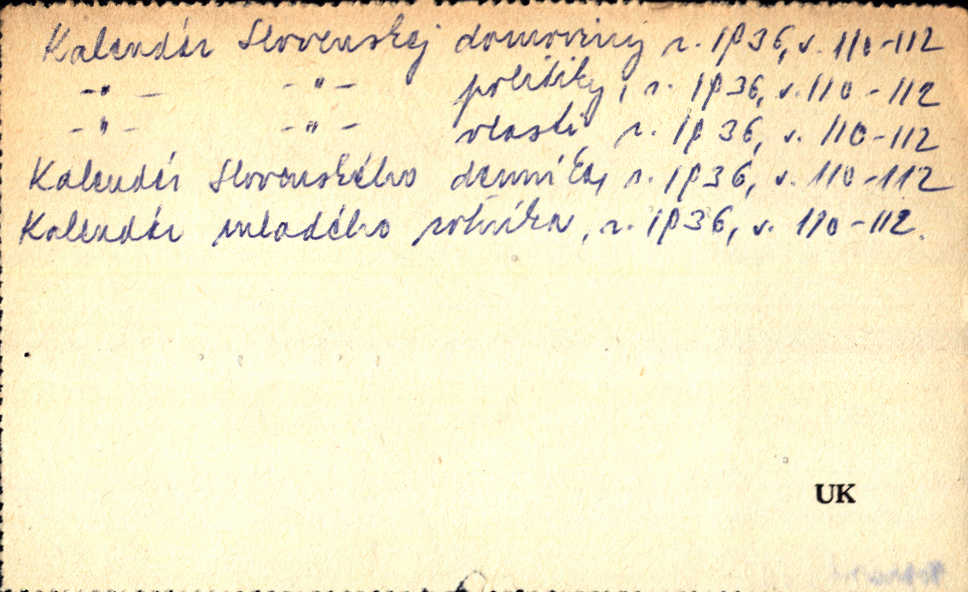 Kalendár Slovenskej domoviny r. 1936, s. 110-112
-"- -"- politiky, r. 1936, s. 110-112
-"- -"- vlasti r. 1936, s. 110-112
Kalendár Slovenského denníka, r. 1936, s. 110-112
Kalendár mladého roľníka, r. 1936, s. 110-112.
UK